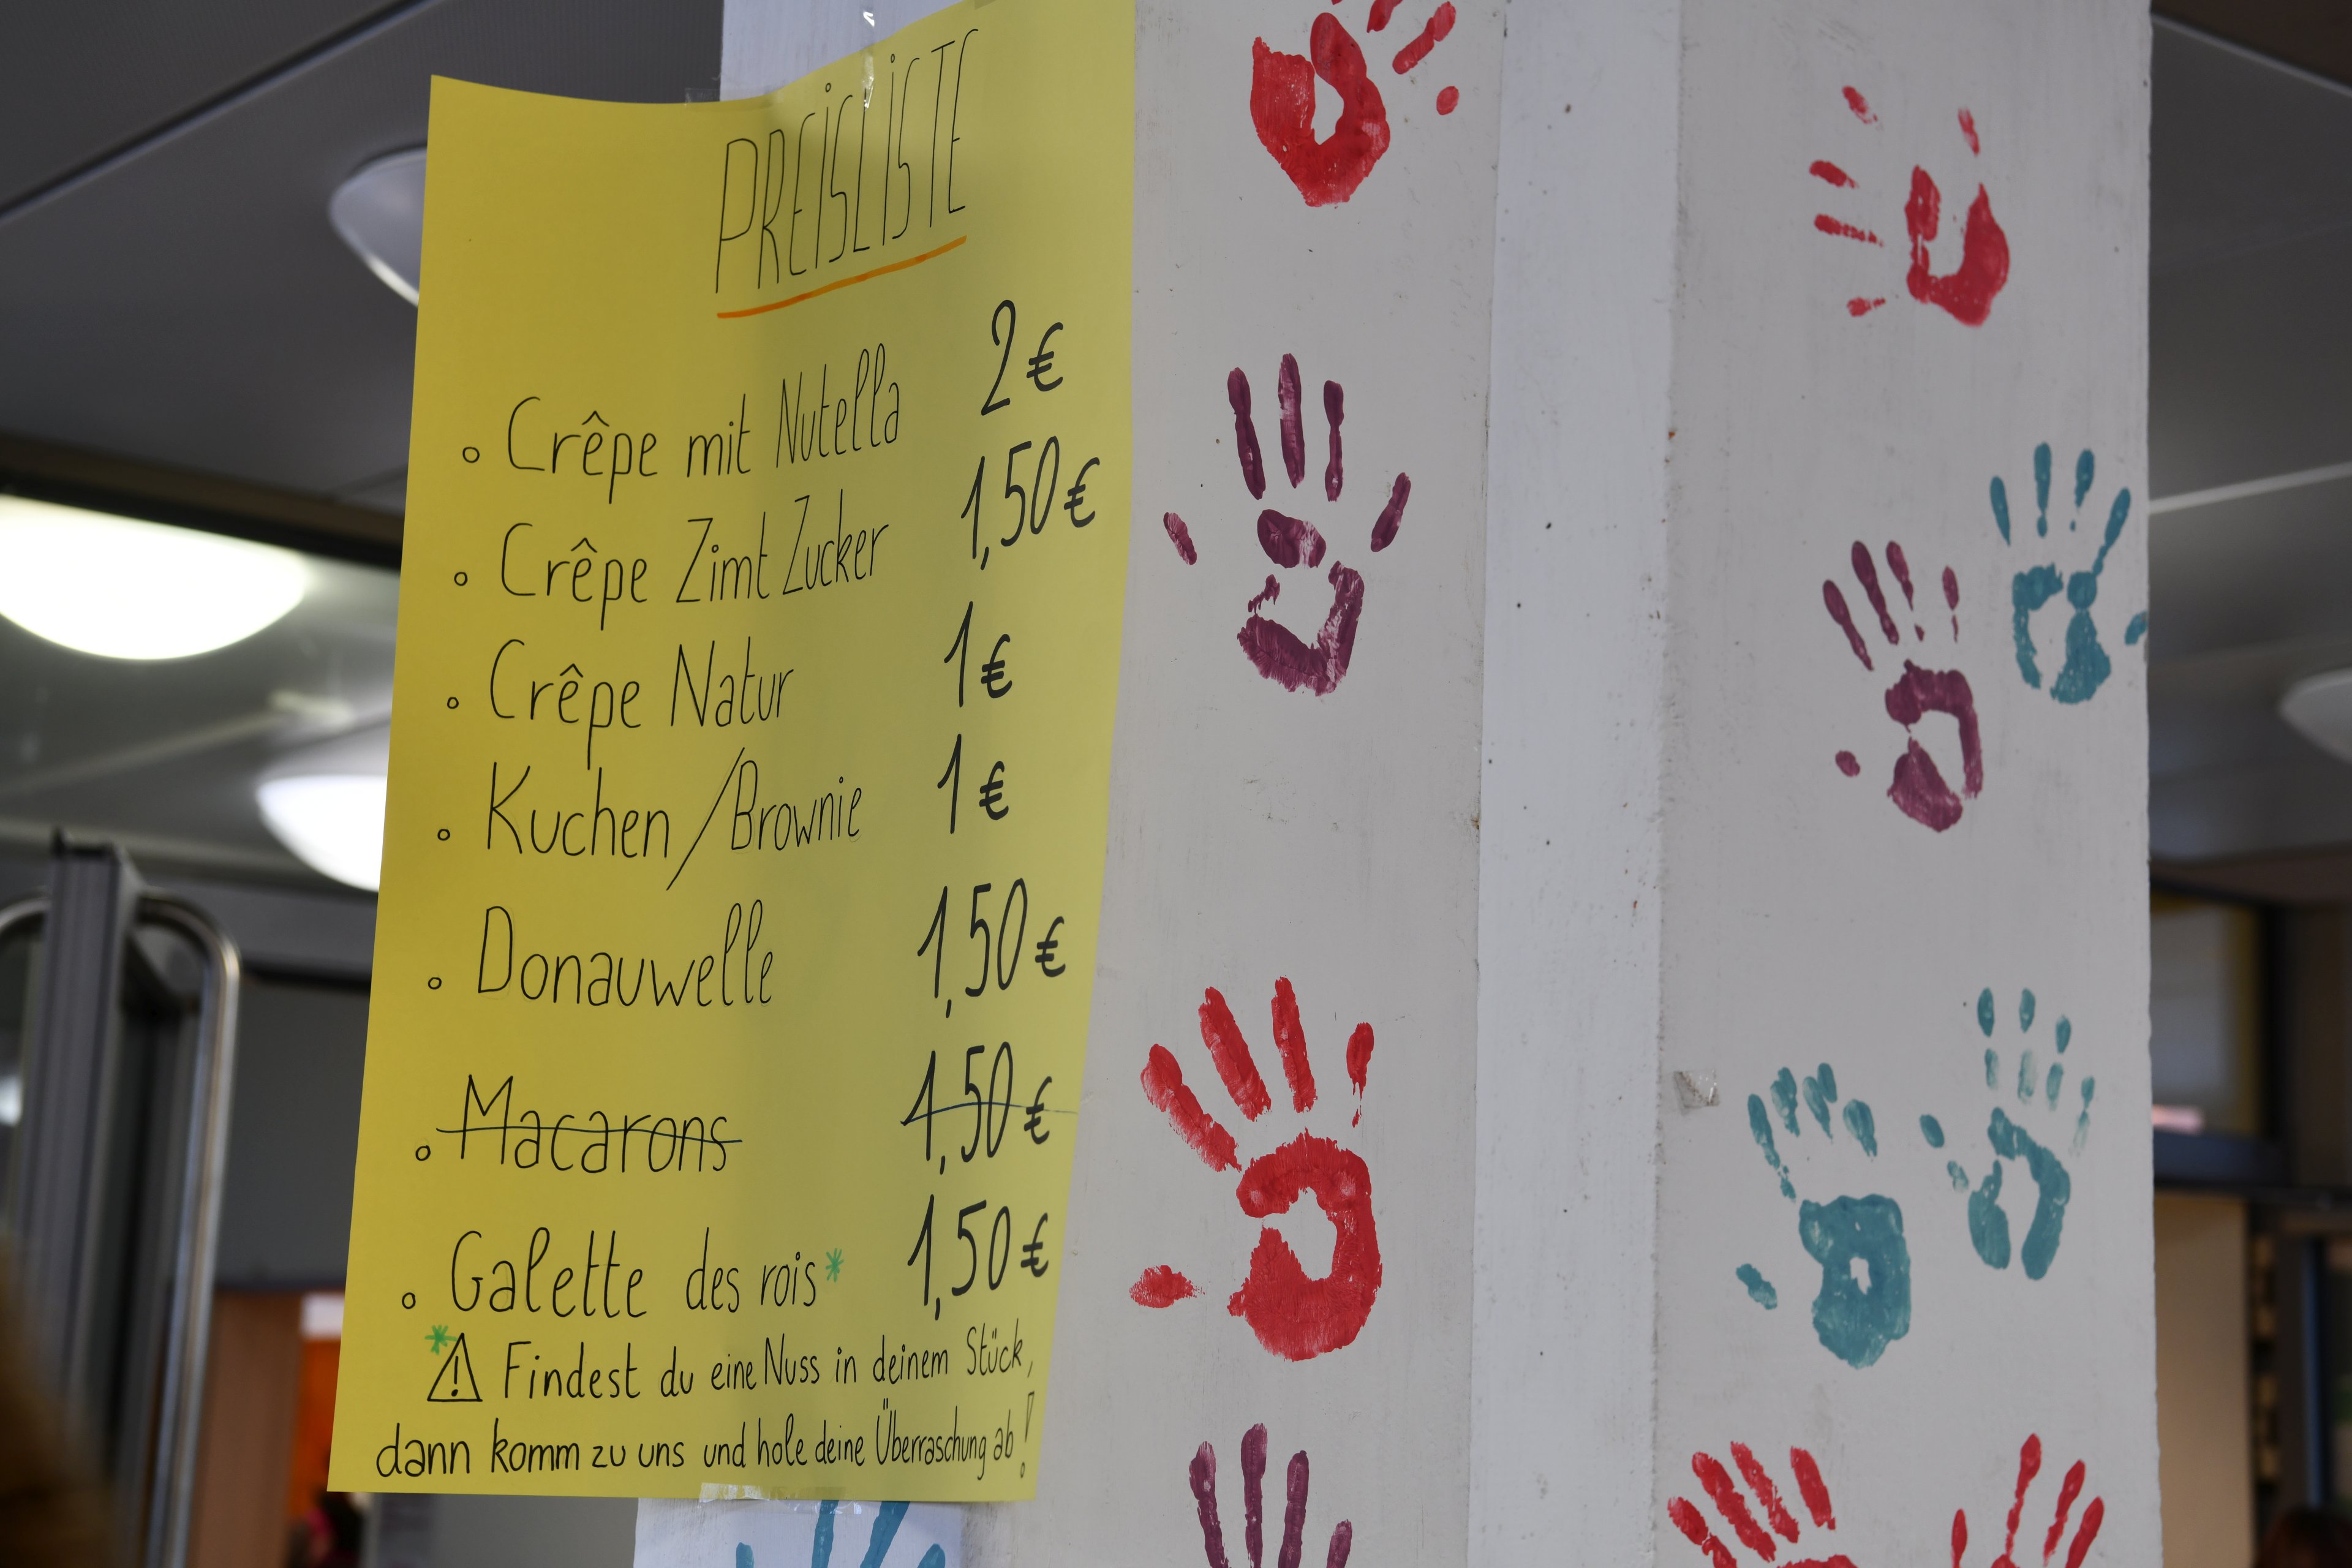 PREISLISTE
∘ Crêpe mit Nutella 2€
∘ Crêpe Zimt Zucker 1,50€
∘ Crêpe Natur 1€
∘ Kuchen/Brownie 1€
∘ Donauwelle 1,50€
∘ Macarons 1,50€
∘ Galette des rois* 1,50€
*⚠ Findest du eine Nuss in deinem Stück,
dann komm zu uns und hole deine Überraschung ab!